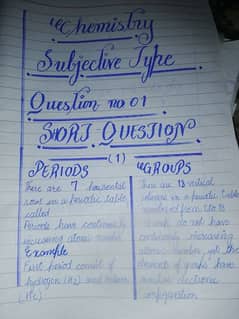 "Chemistry
Subjective Type
Question no 01
SHORT QUESTION
(1)
PERIODS
There are 7 horizontal
rows in a periodic table
called
Periods have continuously
increasing atomic number
Example
First period consist of
hydrogen (H2) and helium
(He)
"GROUPS
There are 18 vertical
columns in a periodic table
numbered from 1 to 18
do not have
continuously increasing
atomic number, yet the
elements of groups have
similar electronic
configuration